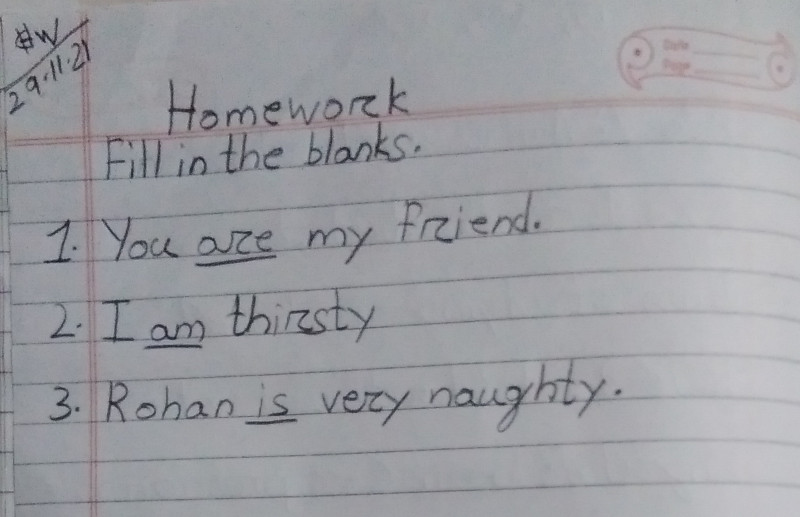 HW
29.11.21
Date
Page
Homework
Fill in the blanks.
1. You are my friend.
2. I am thirsty
3. Rohan is very naughty.